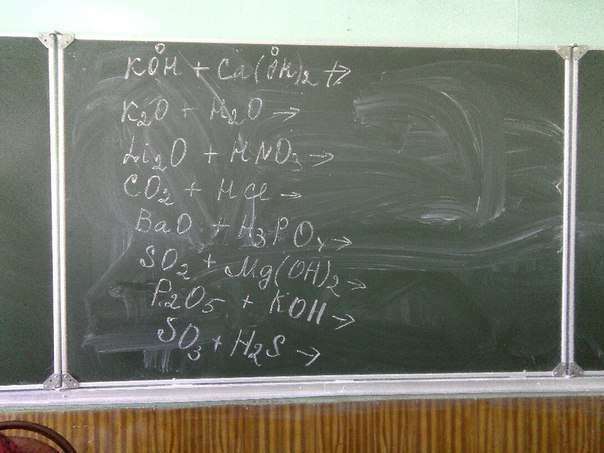 KOH + Ca(OH)₂ ↛
K₂O + H₂O →
Li₂O + HNO₃ →
CO₂ + HCl →
BaO + H₃PO₄ →
SO₂ + Mg(OH)₂ →
P₂O₅ + KOH →
SO₃ + H₂S →